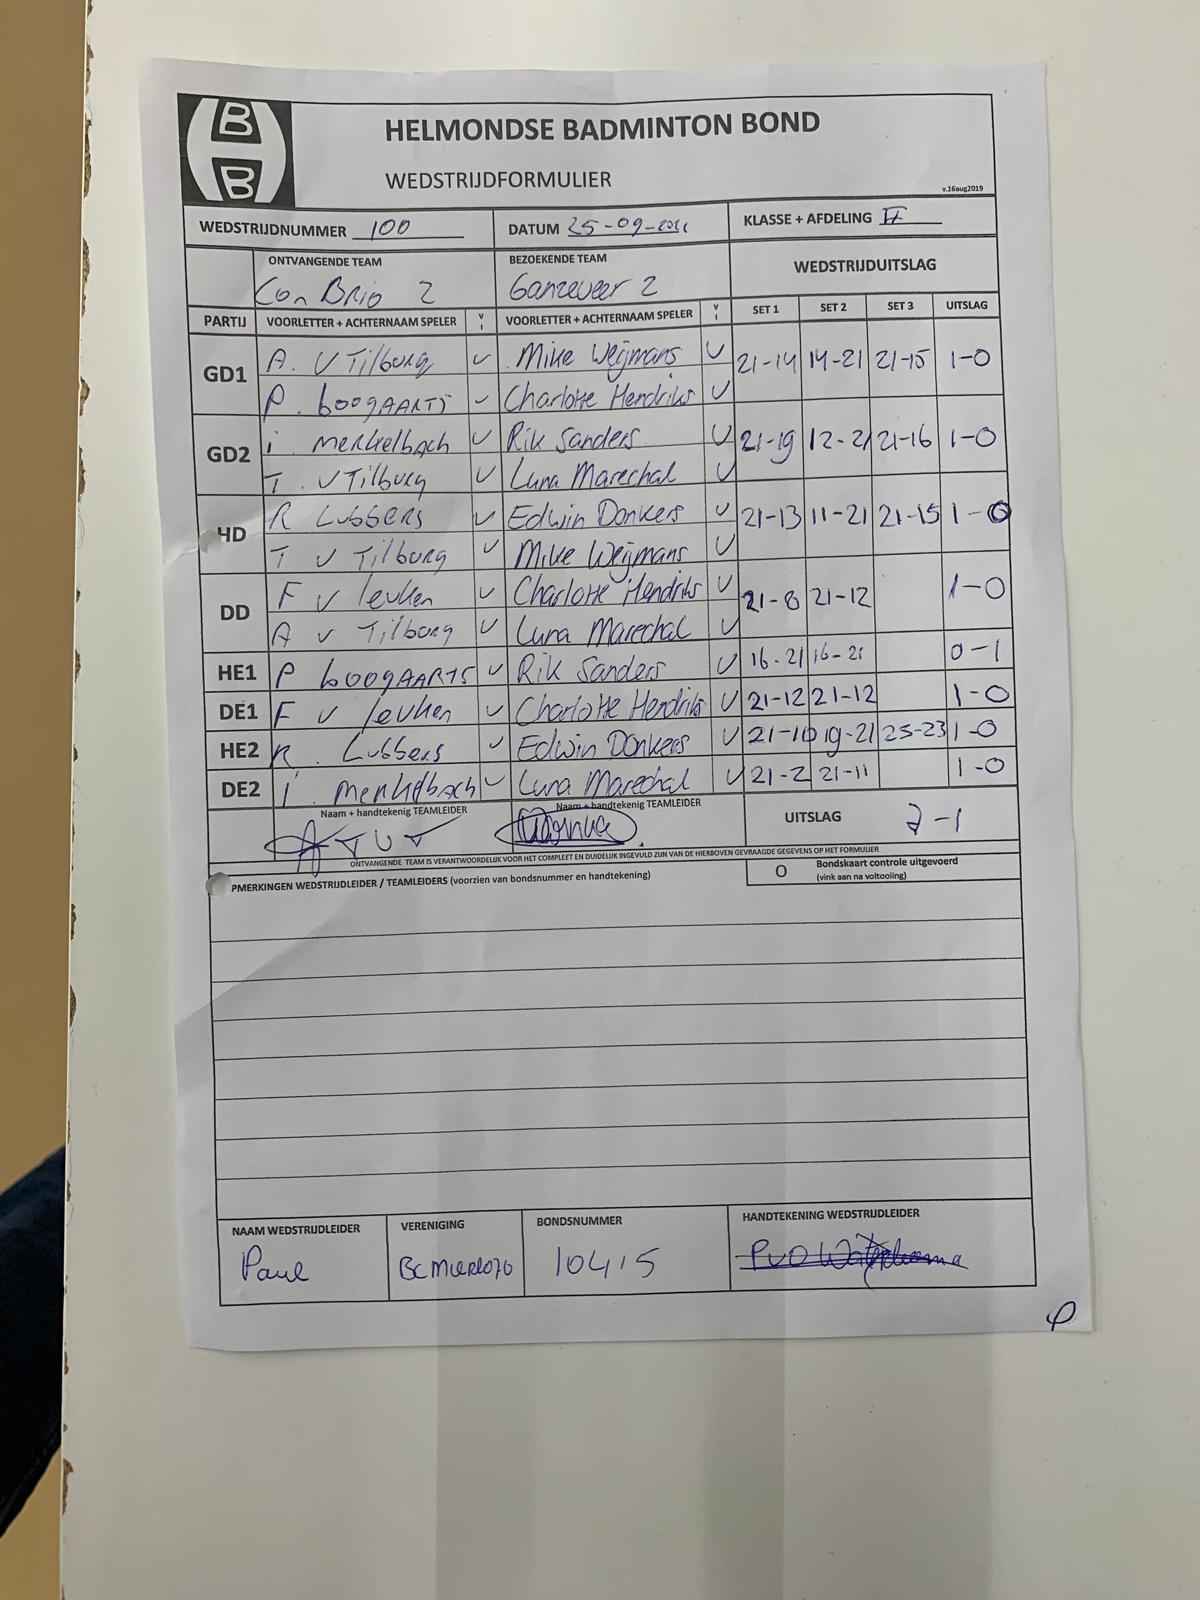 B
B
HELMONDSE BADMINTON BOND
WEDSTRIJDFORMULIER
v.16aug2019
WEDSTRIJDNUMMER 100 DATUM 25-09-2021 KLASSE + AFDELING II
ONTVANGENDE TEAM BEZOEKENDE TEAM WEDSTRIJDUITSLAG
Con Brio 2 Ganzeveer 2
PARTIJ VOORLETTER + ACHTERNAAM SPELER V I VOORLETTER + ACHTERNAAM SPELER V I SET 1 SET 2 SET 3 UITSLAG
GD1 A. v Tilburg V Mike Weijmans V 21-14 14-21 21-15 1-0
P. boogaarts V Charlotte Hendriks V
GD2 i. merkelbach V Rik Sanders V 21-19 12-21 21-16 1-0
T. v Tilburg V Luna Marechal V
HD R Lubbers V Edwin Donkers V 21-13 11-21 21-15 1-0
T v Tilburg V Mike Weijmans V
DD F v leuken V Charlotte Hendriks V 21-8 21-12 1-0
A v Tilburg V Luna Marechal V
HE1 P boogaarts V Rik Sanders V 16-21 16-21 0-1
DE1 F v leuken V Charlotte Hendriks V 21-12 21-12 1-0
HE2 R. Lubbers V Edwin Donkers V 21-10 19-21 25-23 1-0
DE2 i. merkelbach V Luna Marechal V 21-2 21-11 1-0
Naam + handtekenig TEAMLEIDER Naam + handtekenig TEAMLEIDER
UITSLAG 7-1
ONTVANGENDE TEAM IS VERANTWOORDELIJK VOOR HET COMPLEET EN DUIDELIJK INGEVULD ZIJN VAN DE HIERBOVEN GEVRAAGDE GEGEVENS OP HET FORMULIER
PMERKINGEN WEDSTRIJDLEIDER / TEAMLEIDERS (voorzien van bondsnummer en handtekening) O Bondskaart controle uitgevoerd
(vink aan na voltooiing)
NAAM WEDSTRIJDLEIDER VERENIGING BONDSNUMMER HANDTEKENING WEDSTRIJDLEIDER
Paul BC Mierlo70 10415